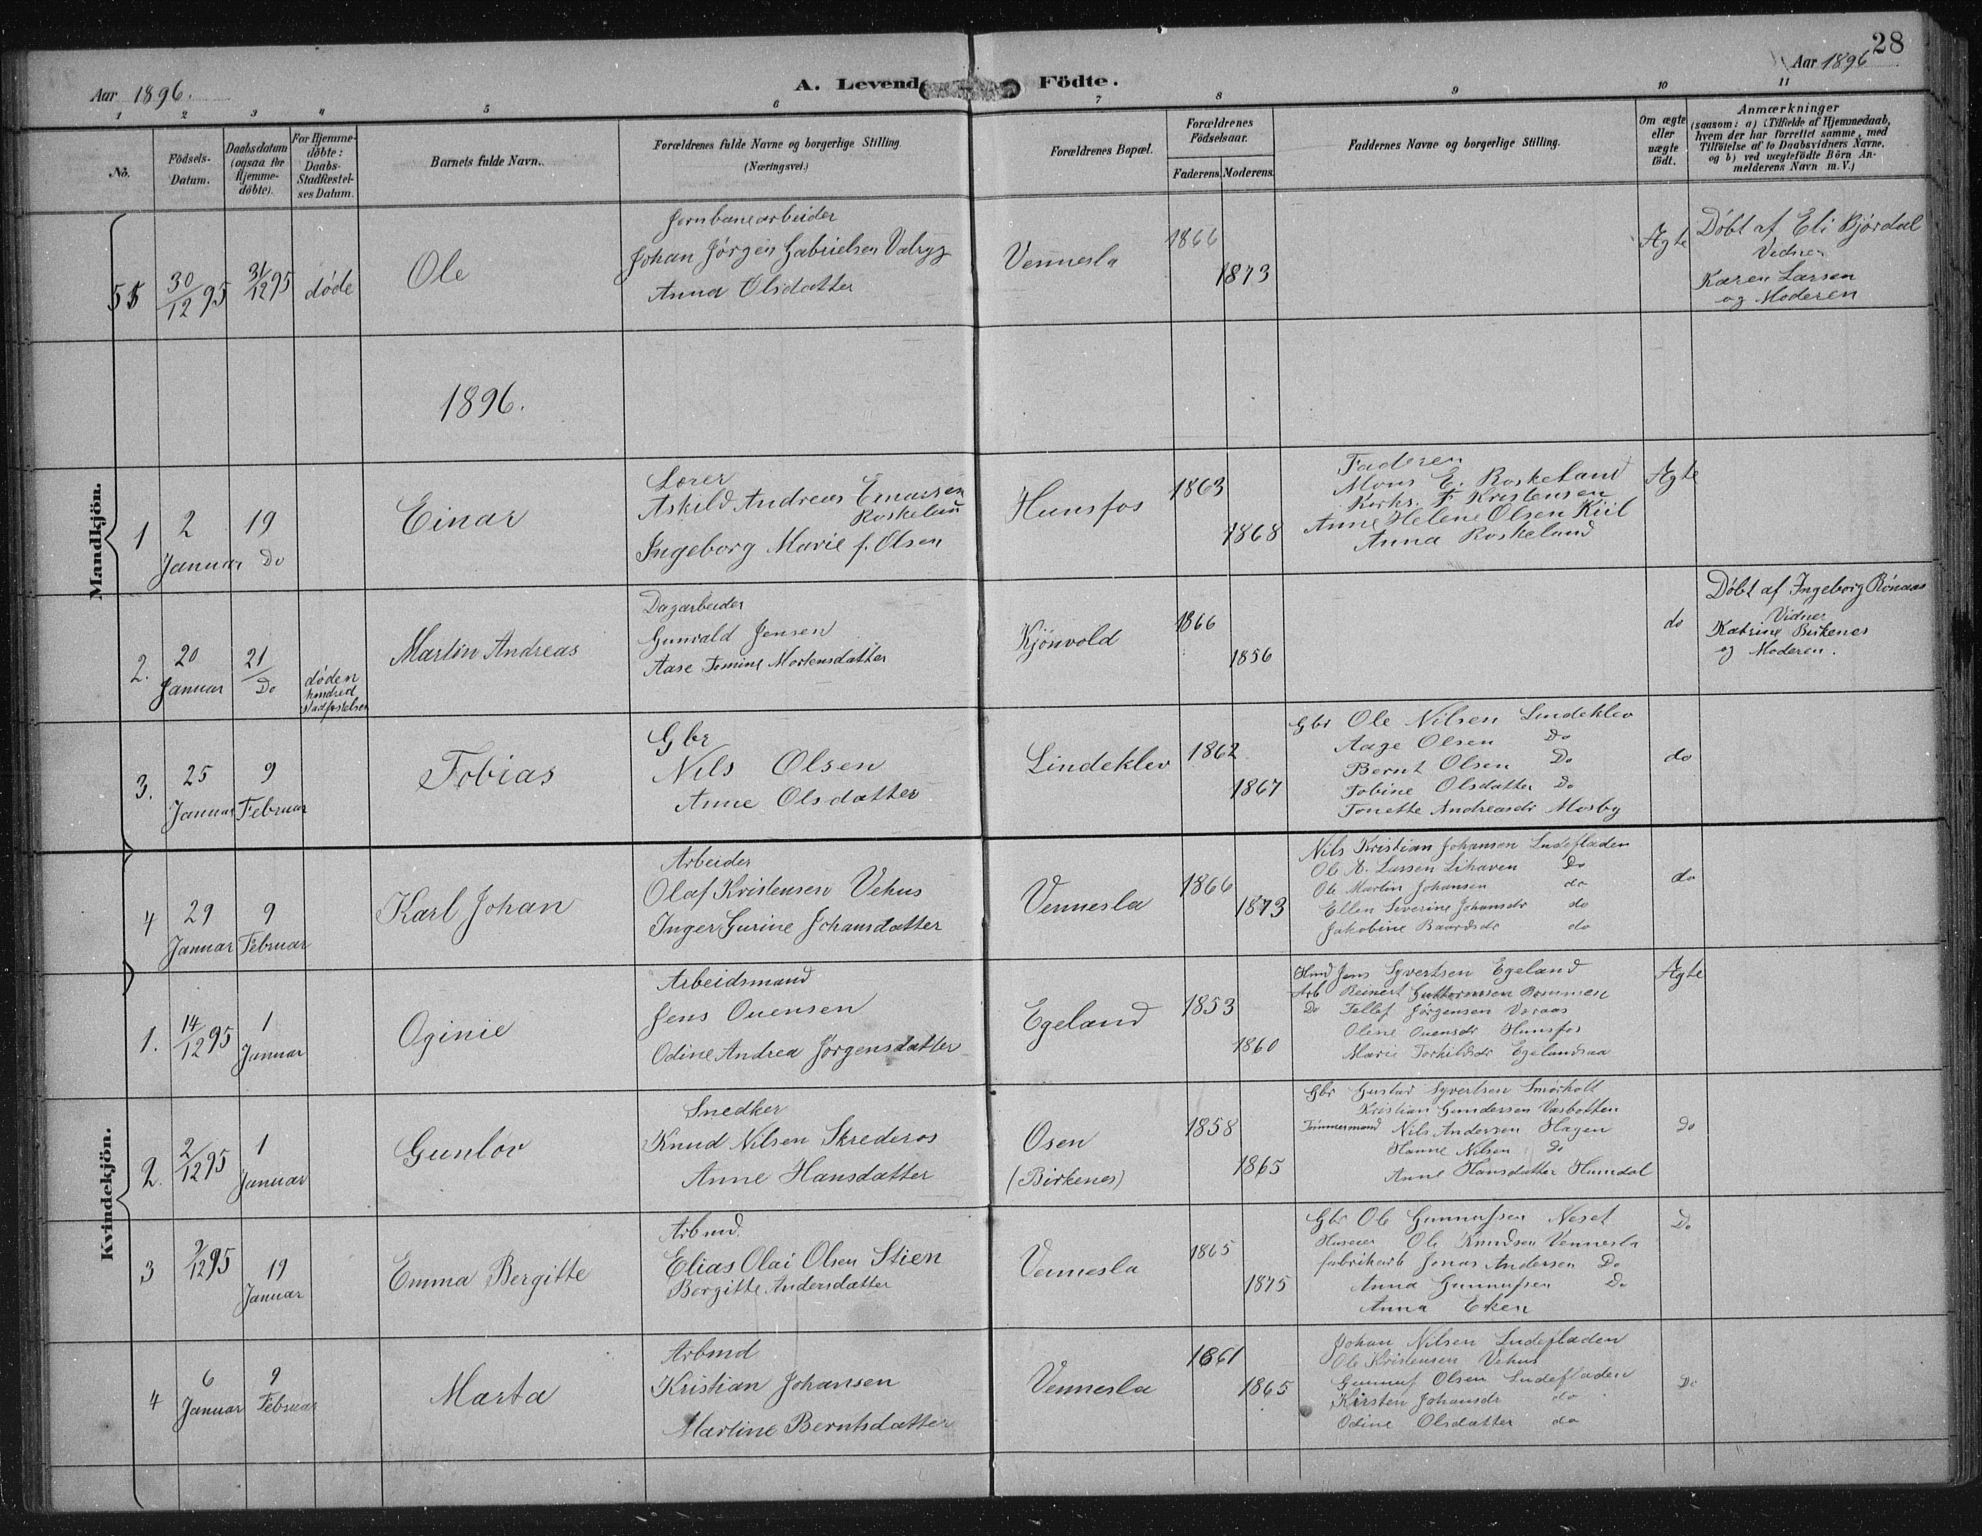 28
Aar 1896.
A. Levende Födte.
Aar 1896
1 2 3 4 5 6 7 8 9 10 11
No.
Födsels-Datum.
Daabsdatum (ogsaa for Hjemme-döbte).
For Hjemme-döbte: Daabs-Stadfæstel-ses Datum.
Barnets fulde Navn.
Forældrenes fulde Navne og borgerlige Stilling
(Næringsvei.)
Forældrenes Bopæl.
Forældrenes Födselsaar.
Faderens. Moderens.
Faddernes Navne og borgerlige Stilling.
Om ægte eller uægte födt.
Anmærkninger
(saasom: a) i Tilfælde af Hjemmedaab, hvem der har forrettet samme, med Tilföielse af to Daabsvidners Navne, og b) ved uægtefödte Börn An-melderens Navn m. V.)
Mandkjön.
55 30/12 95 31/12 95 døde
Ole
Jernbanearbeider
Johan Jörgen Gabrielsen
Anna Olsdatter
Vennesla
1866
1873
Ægte
Døbt af Eli Bjørdal
Vidner
Karen Larsen
og Moderen
1896.
1 2 Januar 19 Do
Einar
Lærer
Askild Andreas Emassen
Roskeland
Ingeborg Marie f. Olsen
Hunsfos
1863
1868
Faderen
Mons E. Roskeland
Kirks. F Kristensen
Anne Helene Olsen Kiil
Anna Roskeland
Ægte
2. 20 Januar 21 Do døden
Martin Andreas
Dagarbeider
Gunvald Jensen
Aase Tomine Mortensdatter
Kjönvold
1866
1856
do
Døbt af Ingeborg Rönaas
Vidner
Katrine Birkenes
og Moderen.
3. 25 Januar 9 Februar
Tobias
Gbr
Nils Olsen
Anne Olsdatter
Lindeklev
1862
1867
Gbr Ole Nilsen Lindeklev
Aage Olsen Do
Bernt Olsen Do
Tobine Olsdatter Do
Tonette Andreasdr Mosby
do
4 29 Januar 9 Februar
Karl Johan
Arbeider
Olaf Kristensen Vehus
Inger Gurine Johansdatter
Vennesla
1866
1873
Nils Kristian Johansen Lindefladen
Ole A. Larsen Lihaven Do
Ole Martin Johansen do
Ellen Severine Johansdr do
Jakobine Baardsdr do
do
Kvindekjön.
1. 14/12 95 1 Januar
Oginie
Arbeidsmand
Jens Ouensen
Odine Andrea Jörgensdatter
Egeland
1853
1860
Jens Syvertsen Egeland
Arb Reinert Guttormsen Rommen
Do Tellef Jörgensen Varaas
Oline Ouensdr Hunsfos
Marie Torkildsdr Egelandsaa
Ægte
2. 2/12 95 1 Januar
Gunlov
Snedker
Knud Nilsen Skrederos
Anne Hansdatter
Osen
(Birkenes)
1858
1865
Gbr Gustav Syvertsen Smörholt
Kristian Gundersen Vasbotten
Tömmermand Nils Andersen Hagen
Hanne Nilsen Do
Anne Hansdatter Humdal
do
3 9/12 95 19 Januar
Emma Bergitte
Arbmd.
Elias Olai Olsen Stien
Bergitte Andersdatter
Vennesla
1865
1875
Gbr Ole Gunnufsen Neset
Huseier Ole Knudsen Vennesla
fabrikarb Jonas Andersen Do
Anna Gunnufsen Do
Anna Eken
Do
4 6 Januar 9 Februar
Marta
Arbmd
Kristian Johansen
Martine Berntsdatter
Vennesla
1861
1865
Johan Nilsen Lindefladen
Ole Kristensen Vehus
Gunnuf Olsen Lindefladen
Kirsten Johansdr do
Odine Olsdatter do
Do